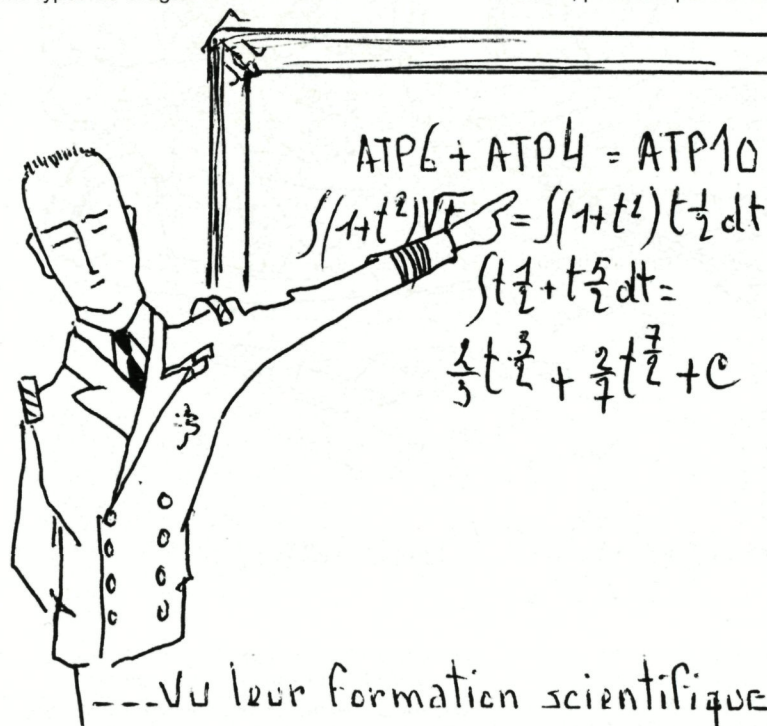 ATP6 + ATP4 = ATP10
∫(1+t²)√t = ∫(1+t²) t½ dt
∫t½ + t5/2 dt =
2/3 t 3/2 + 2/7 t 7/2 + C
---Vu leur formation scientifique